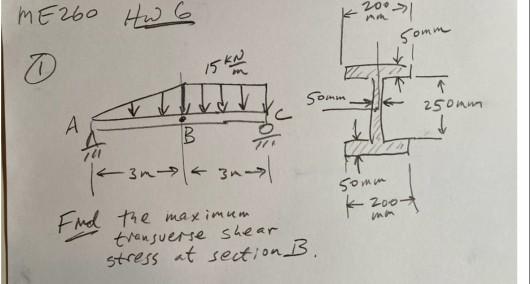 ME260 HW 6
200
mm
50mm
①
15 kN/m
50mm
250mm
A
B
C
3m
3m
50mm
200
mm
Find the maximum
transverse shear
stress at section B.